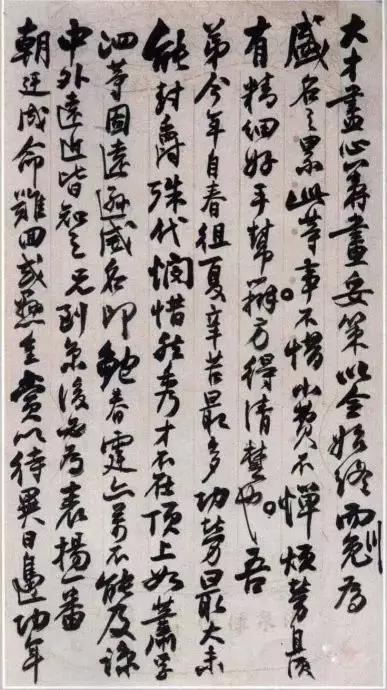 大才盡心籌畫妥策以全始終而免為
盛名之累此等事不惜小費不憚煩勞且須
有精細好手幫辦方得清楚也吾
弟今年自春徂夏辛苦最多功勞最大未
能封爵殊代憫惜然秀才不在頂上如蕭孚
泗等固遠遜威名即鮑春霆亦萬不能及諒
中外遠近皆知之兄到京後必為表揚一番
朝廷成命難回或懸賞以待異日邊功年